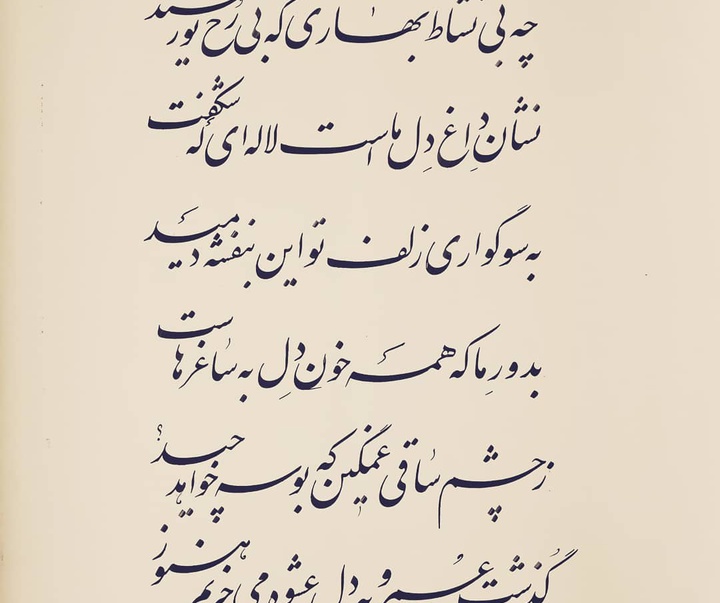 چه بی نشاط بهاری که بی رخ تو رسید
نشان داغ دل ماست لاله‌ای که شکفت
به سوگواری زلف تو این بنفشه دمید
بدور ما که همه خون دل به ساغرهاست
ز چشم ساقی غمگین که بوسه خواهد چید؟
گذشت عمر و به دل عشوه می خریم هنوز